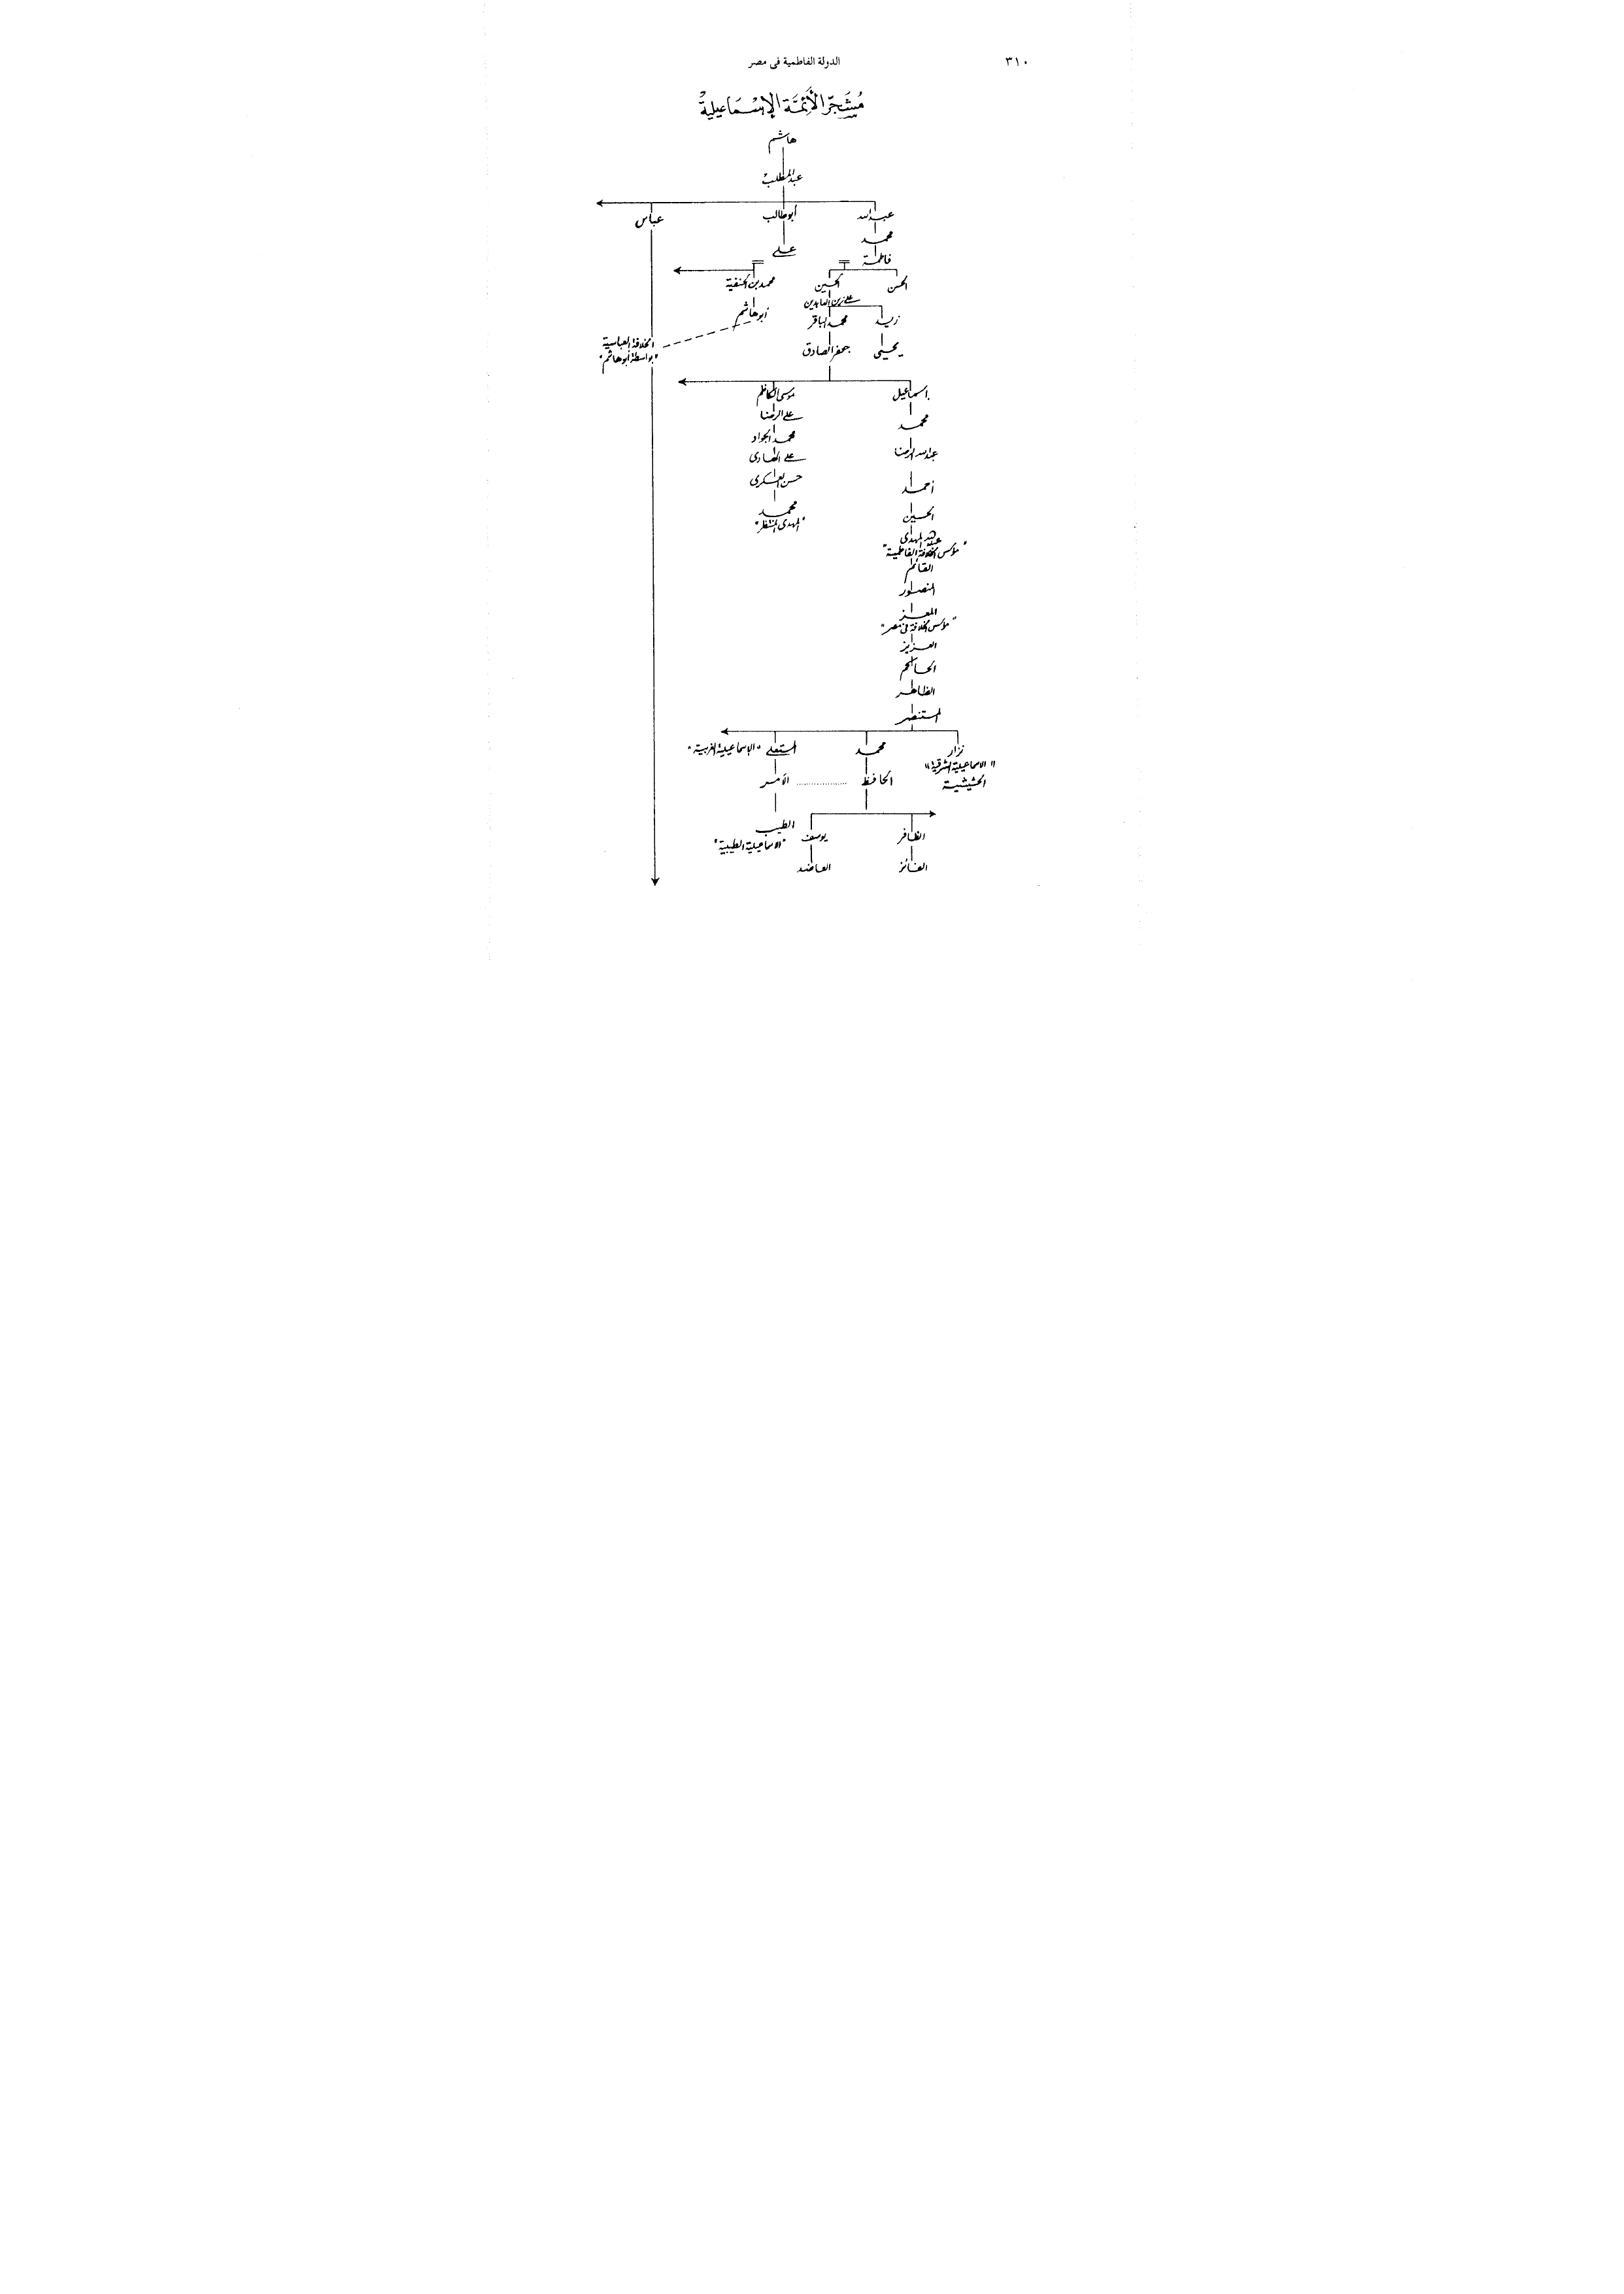 ٣١٠
الدولة الفاطمية فى مصر
مُشَجّر الأئمَّة الإسْمَاعيلية
هاشم
عبد المطلب
عبد الله
أبو طالب
عباس
محمد
على
فاطمة
الحسن
الحسين
محمد بن الحنفية
على زين العابدين
زيد
محمد الباقر
أبو هاشم
يحيى
جعفر الصادق
الخلافة العباسية
"بواسطة أبو هاشم"
إسماعيل
موسى الكاظم
محمد
على الرضا
محمد الجواد
عبد الله الرضا
على الهادى
أحمد
حسن العسكرى
الحسين
محمد
"المهدى المنتظر"
عبيد الله المهدى
"مؤسس الخلافة الفاطمية"
القائم
المنصور
المعز
"مؤسس الخلافة فى مصر"
العزيز
الحاكم
الظاهر
المستنصر
نزار
محمد
المستعلى "الإسماعيلية الغربية"
"الاسماعيلية الشرقية"
الحشيشية
الحافظ
الآمر
الظافر
يوسف
الطيب
"الاسماعيلية الطيبية"
الفائز
العاضد